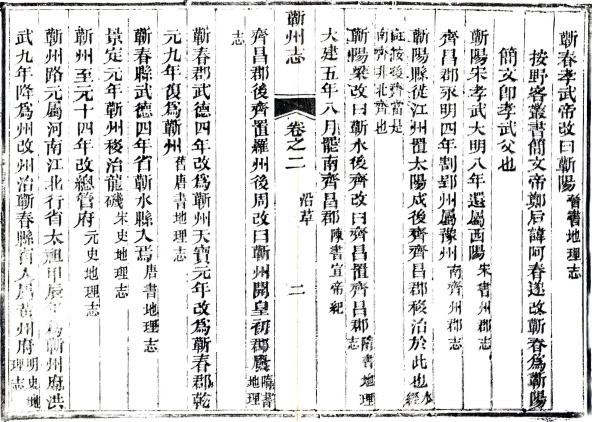 蘄春孝武帝改曰蘄陽晉書地理志
按野客叢書簡文帝鄭后諱阿春遂改蘄春爲蘄陽
簡文卽孝武父也
蘄陽宋孝武大明八年還屬西陽宋書州郡志
齊昌郡永明四年割郢州屬豫州南齊州郡志
蘄陽縣徙江州置太陽戍後齊齊昌郡移治於此也水經
註按後齊當是南齊非北齊也
蘄陽梁改曰蘄水後齊改曰齊昌置齊昌郡隋書地理志
大建五年八月罷南齊昌郡陳書宣帝紀
蘄州志
卷之二
沿革
二
齊昌郡後齊置羅州後周改曰蘄州開皇初郡廢隋書地理
志
蘄春郡武德四年改爲蘄州天寶元年改爲蘄春郡乾
元九年復爲蘄州舊唐書地理志
蘄春縣武德四年省蘄水縣入焉唐書地理志
景定元年蘄州移治龍磯宋史地理志
蘄州至元十四年改總管府元史地理志
蘄州路元屬河南江北行省太祖甲辰年爲蘄州府洪
武九年降爲州改州治蘄春縣省入屬黃州府明史地理志